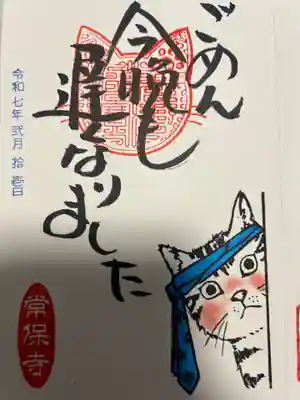 ごめん
今晩も
遅くなり
ました
令和七年 弐月 拾壱日
常保寺